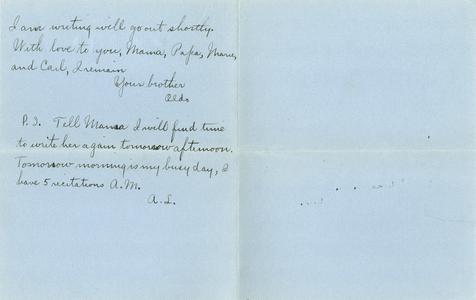 I am writing will go out shortly.
With love to you, Mama, Papa, Marie,
and Carl, I remain
Your brother
Aldo
P.S. Tell Mama I will find time
to write her again tomorrow afternoon.
Tomorrow morning is my busy day, I
have 5 recitations A.M.
A.L.